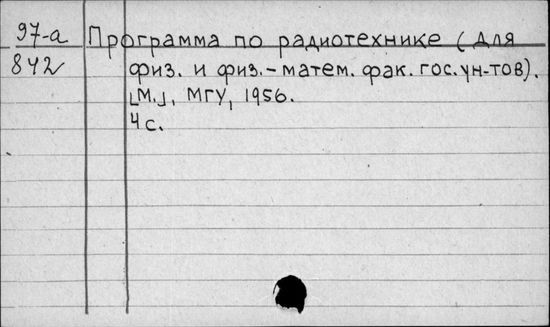 97-а
842
Программа по радиотехнике (для
физ. и физ.-матем. фак. гос. ун-тов).
[М.], МГУ, 1956.
4 с.